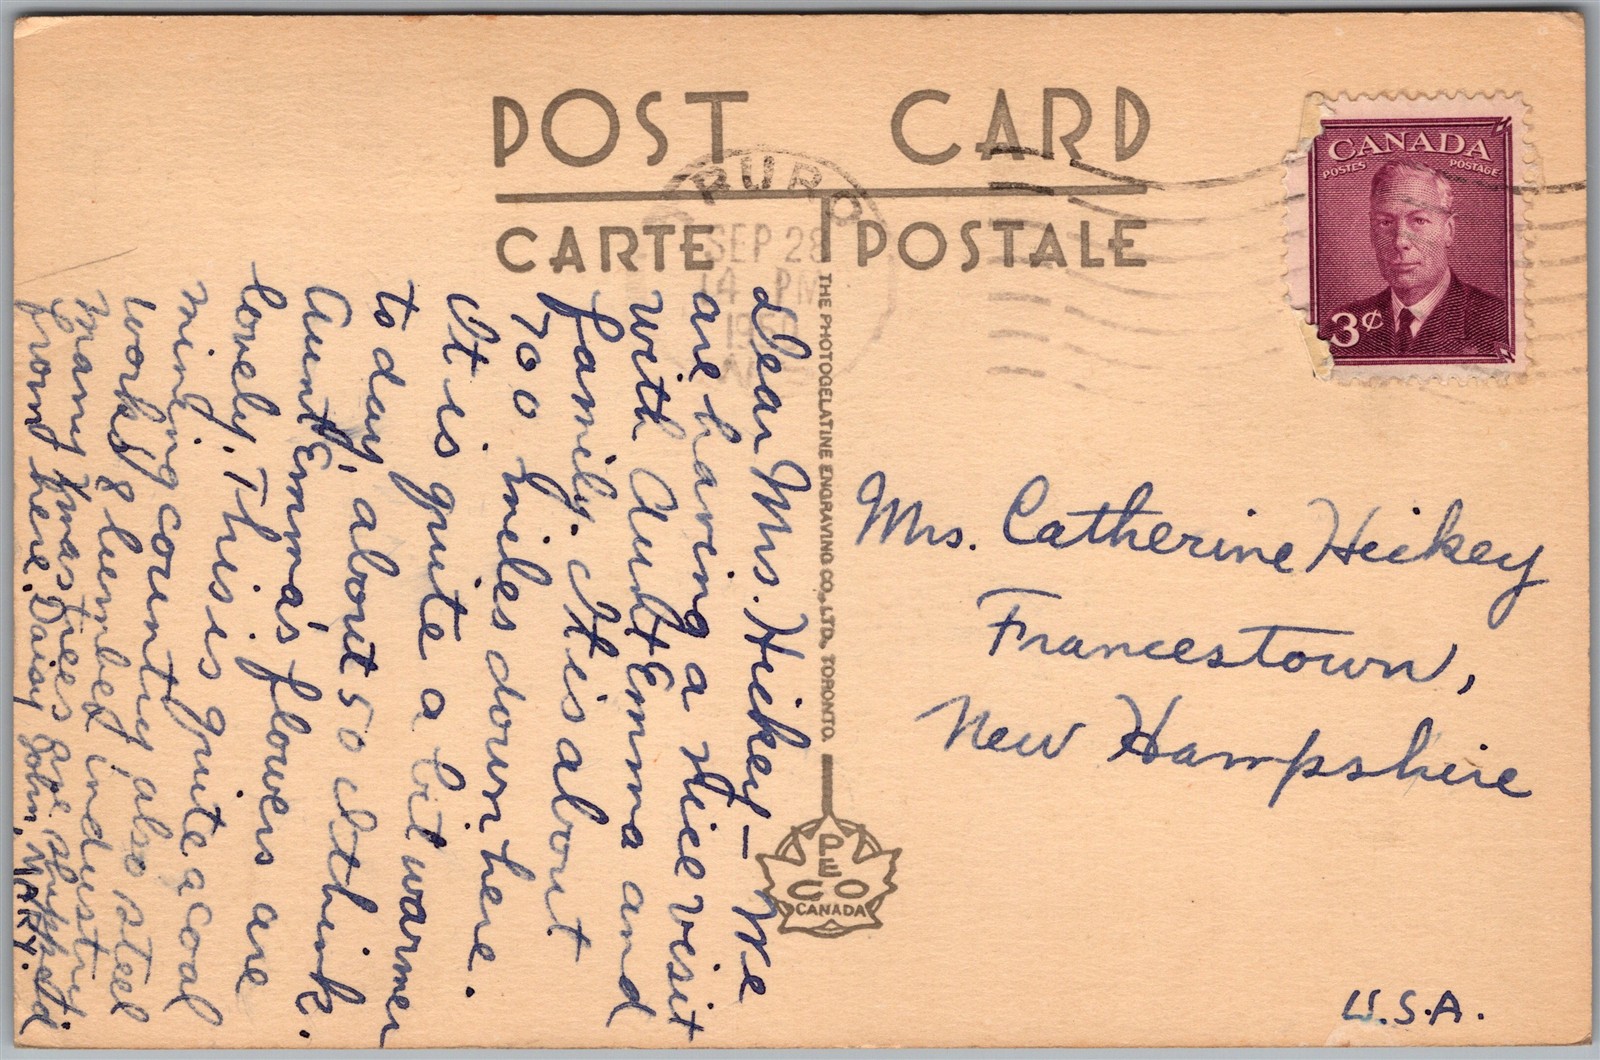 POST CARD
CARTE POSTALE
TRURO
SEP 28
14 PM
1950
CANADA
POSTES POSTAGE
3¢
THE PHOTOGELATINE ENGRAVING CO., LTD., TORONTO.
PECO
CANADA
Dear Mrs. Hickey – We
are having a nice visit
with Aunt Emma and
family. It is about
700 miles down here.
It is quite a bit warmer
to day, about 50 I think.
Aunt Emma's flowers are
lovely. This is quite a coal
mining country also steel
works & lumber industry
Many Xmas trees are shipped
from here. Daisy John, MARY.
Mrs. Catherine Hickey
Francestown,
New Hampshire
U.S.A.